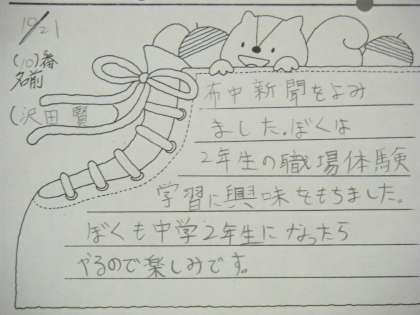 10/21
(10)番
名前
(沢田 賢
布中新聞をよみ
ました。ぼくは
2年生の職場体験
学習に興味をもちました。
ぼくも中学2年生になったら
やるので楽しみです。